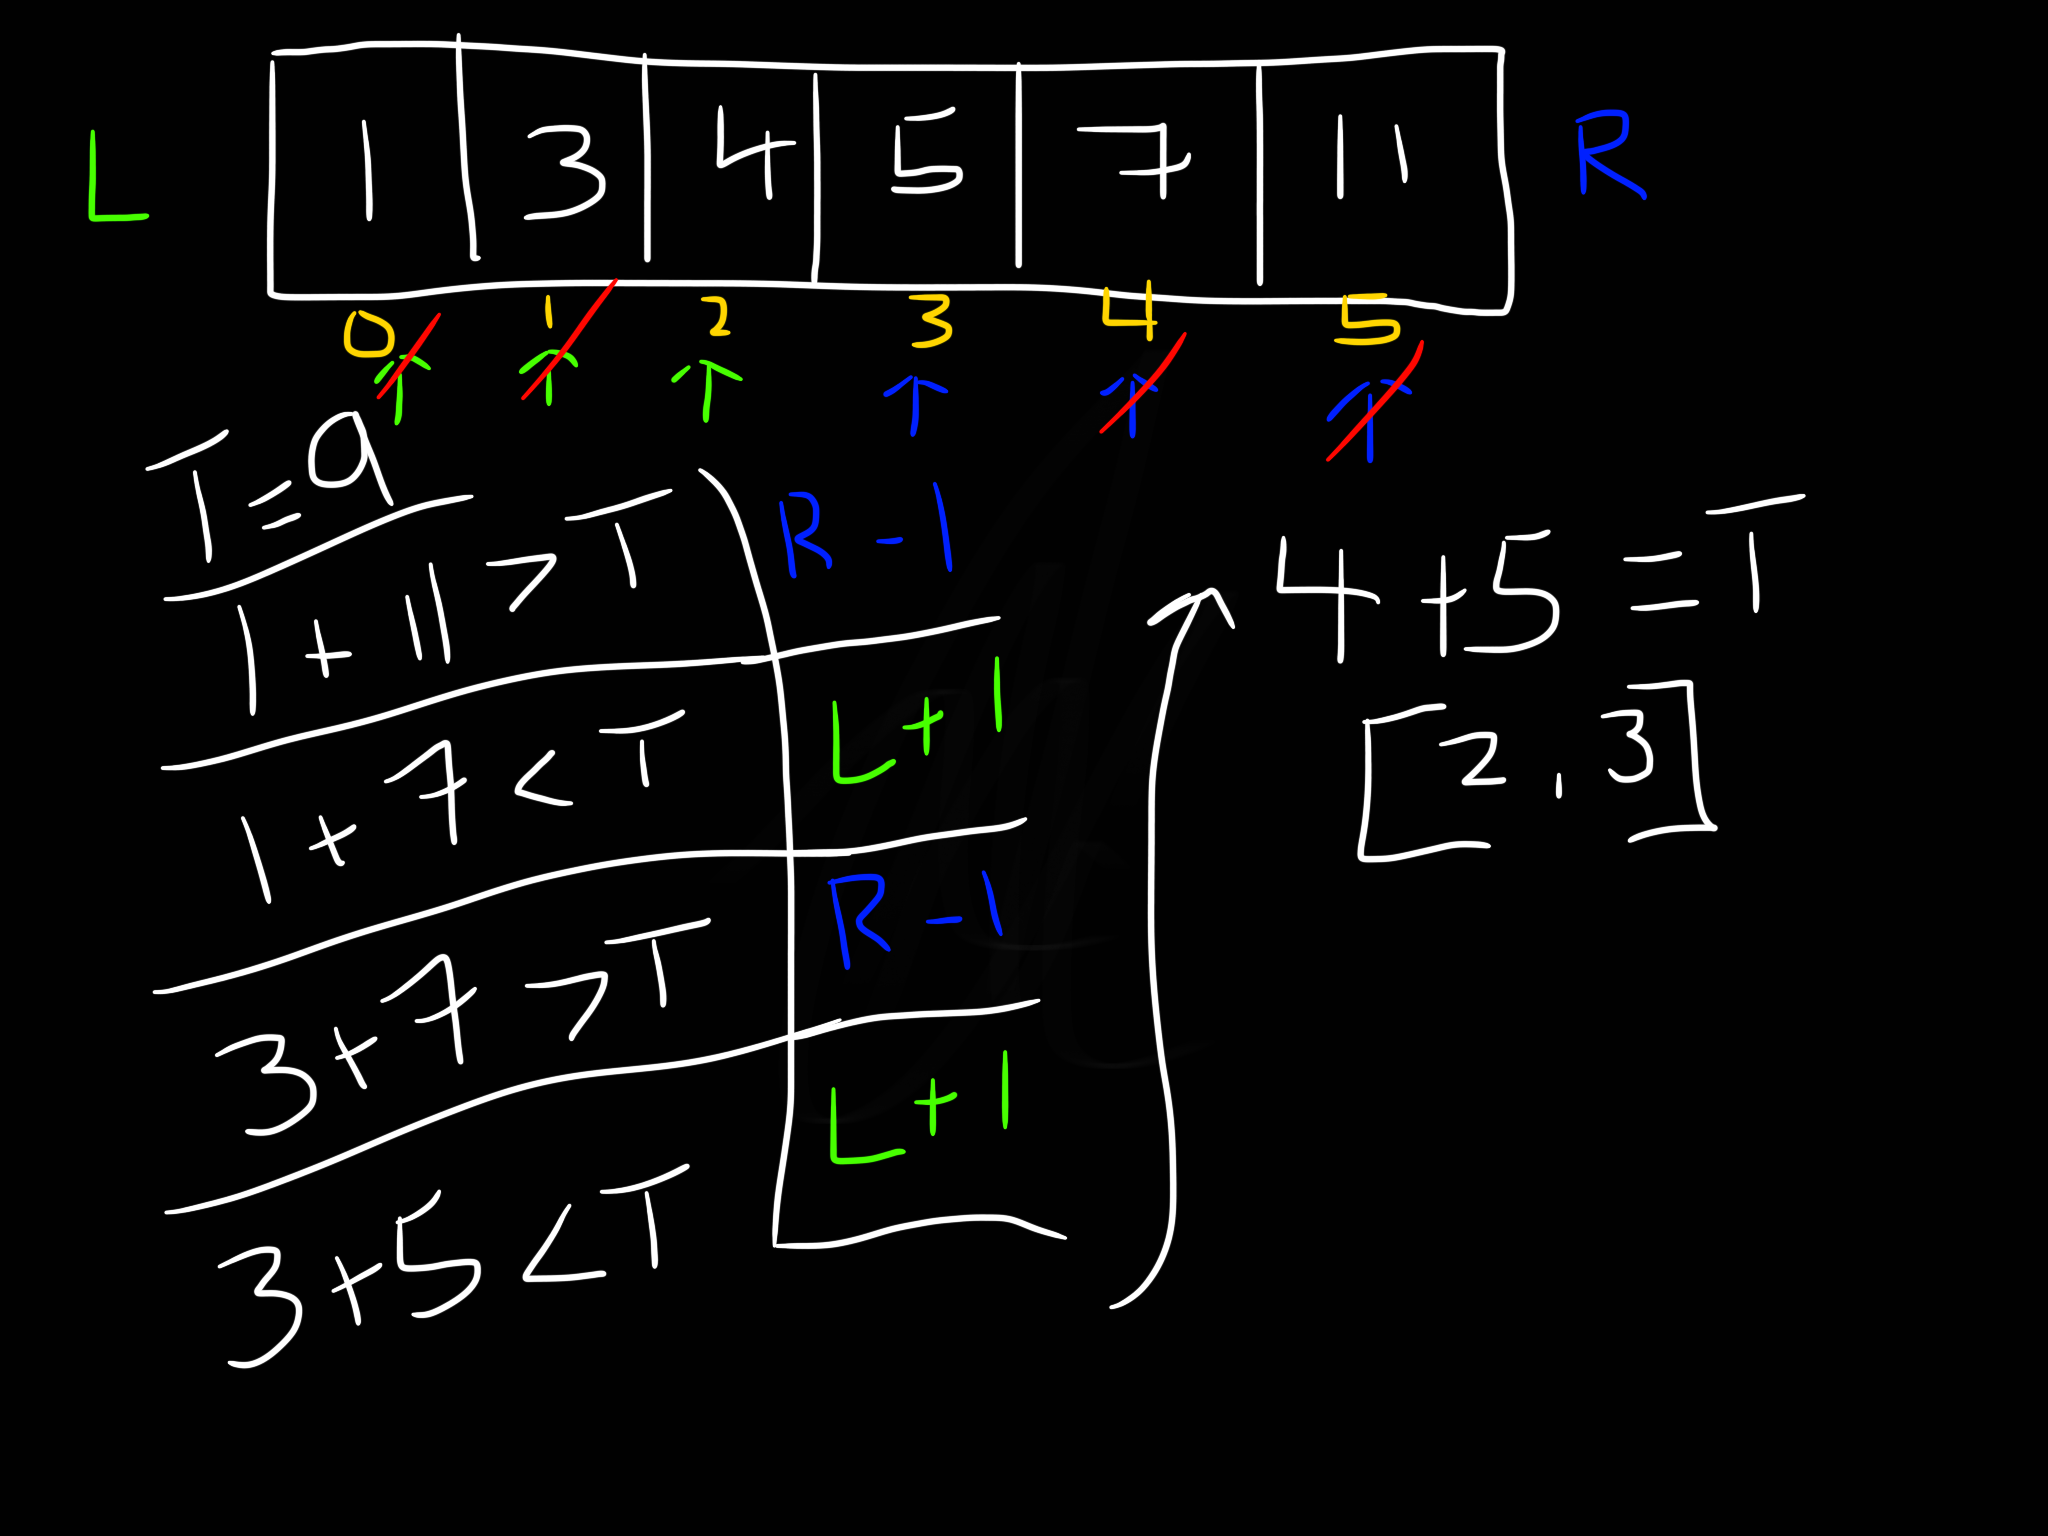 L 1 3 4 5 7 11 R
0 1 2 3 4 5
T = 9
1 + 11 > T R - 1
1 + 7 < T L + 1
3 + 7 > T R - 1
3 + 5 < T L + 1
4 + 5 = T
[2, 3]